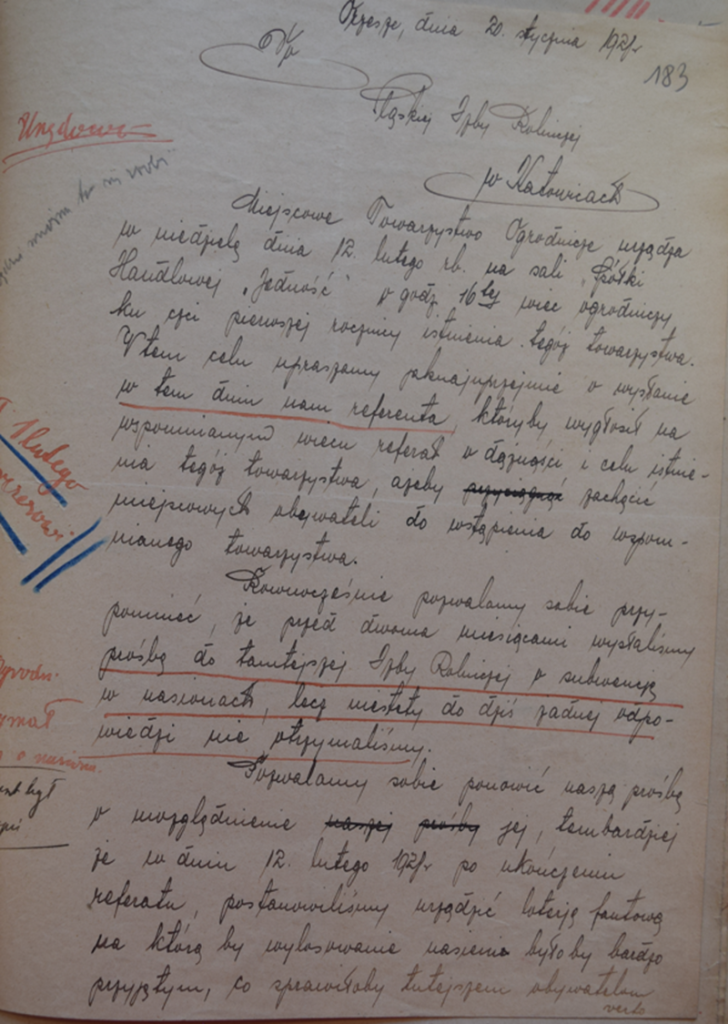 Orzesze, dnia 20. stycznia 192
183
Do
Śląskiej Izby Rolniczej
w Katowicach
Urzędowo
można to się robi
Miejscowe Towarzystwo Ogrodnicze urządza
w niedzielę dnia 12. lutego rb. na sali "Spółki
Handlowej "Jedność" o godz. 16tej wiec ogrodniczy
ku czci pierwszej rocznicy istnienia tegóż towarzystwa.
W tem celu upraszamy jaknajuprzejmie o wysłanie
w tem dniu nam referenta, któryby wygłosił na
wspomnianym wiecu referat o dążności i celu istnie-
nia tegóż towarzystwa, ażeby przyciągnąć zachęcić
miejscowych obywateli do wstąpienia do wspom-
nianego towarzystwa.
1 lutego
Równocześnie pozwalamy sobie przy-
pomnieć, że przed dwoma miesiącami wysłaliśmy
prośbę do tamtejszej Izby Rolniczej o subwencję
w nasionach, lecz niestety do dziś żadnej odpo-
wiedzi nie otrzymaliśmy.
Pozwalamy sobie ponowić naszą prośbę
o uwzględnienie naszej prośby jej, tembardziej
że w dniu 12. lutego 192 po ukończeniu
referatu, postanowiliśmy urządzić loterję fantową
na którą by wylosowanie nasienie byłoby bardzo
przyjętym, co sprawiłoby tutejszem obywatelom
verte